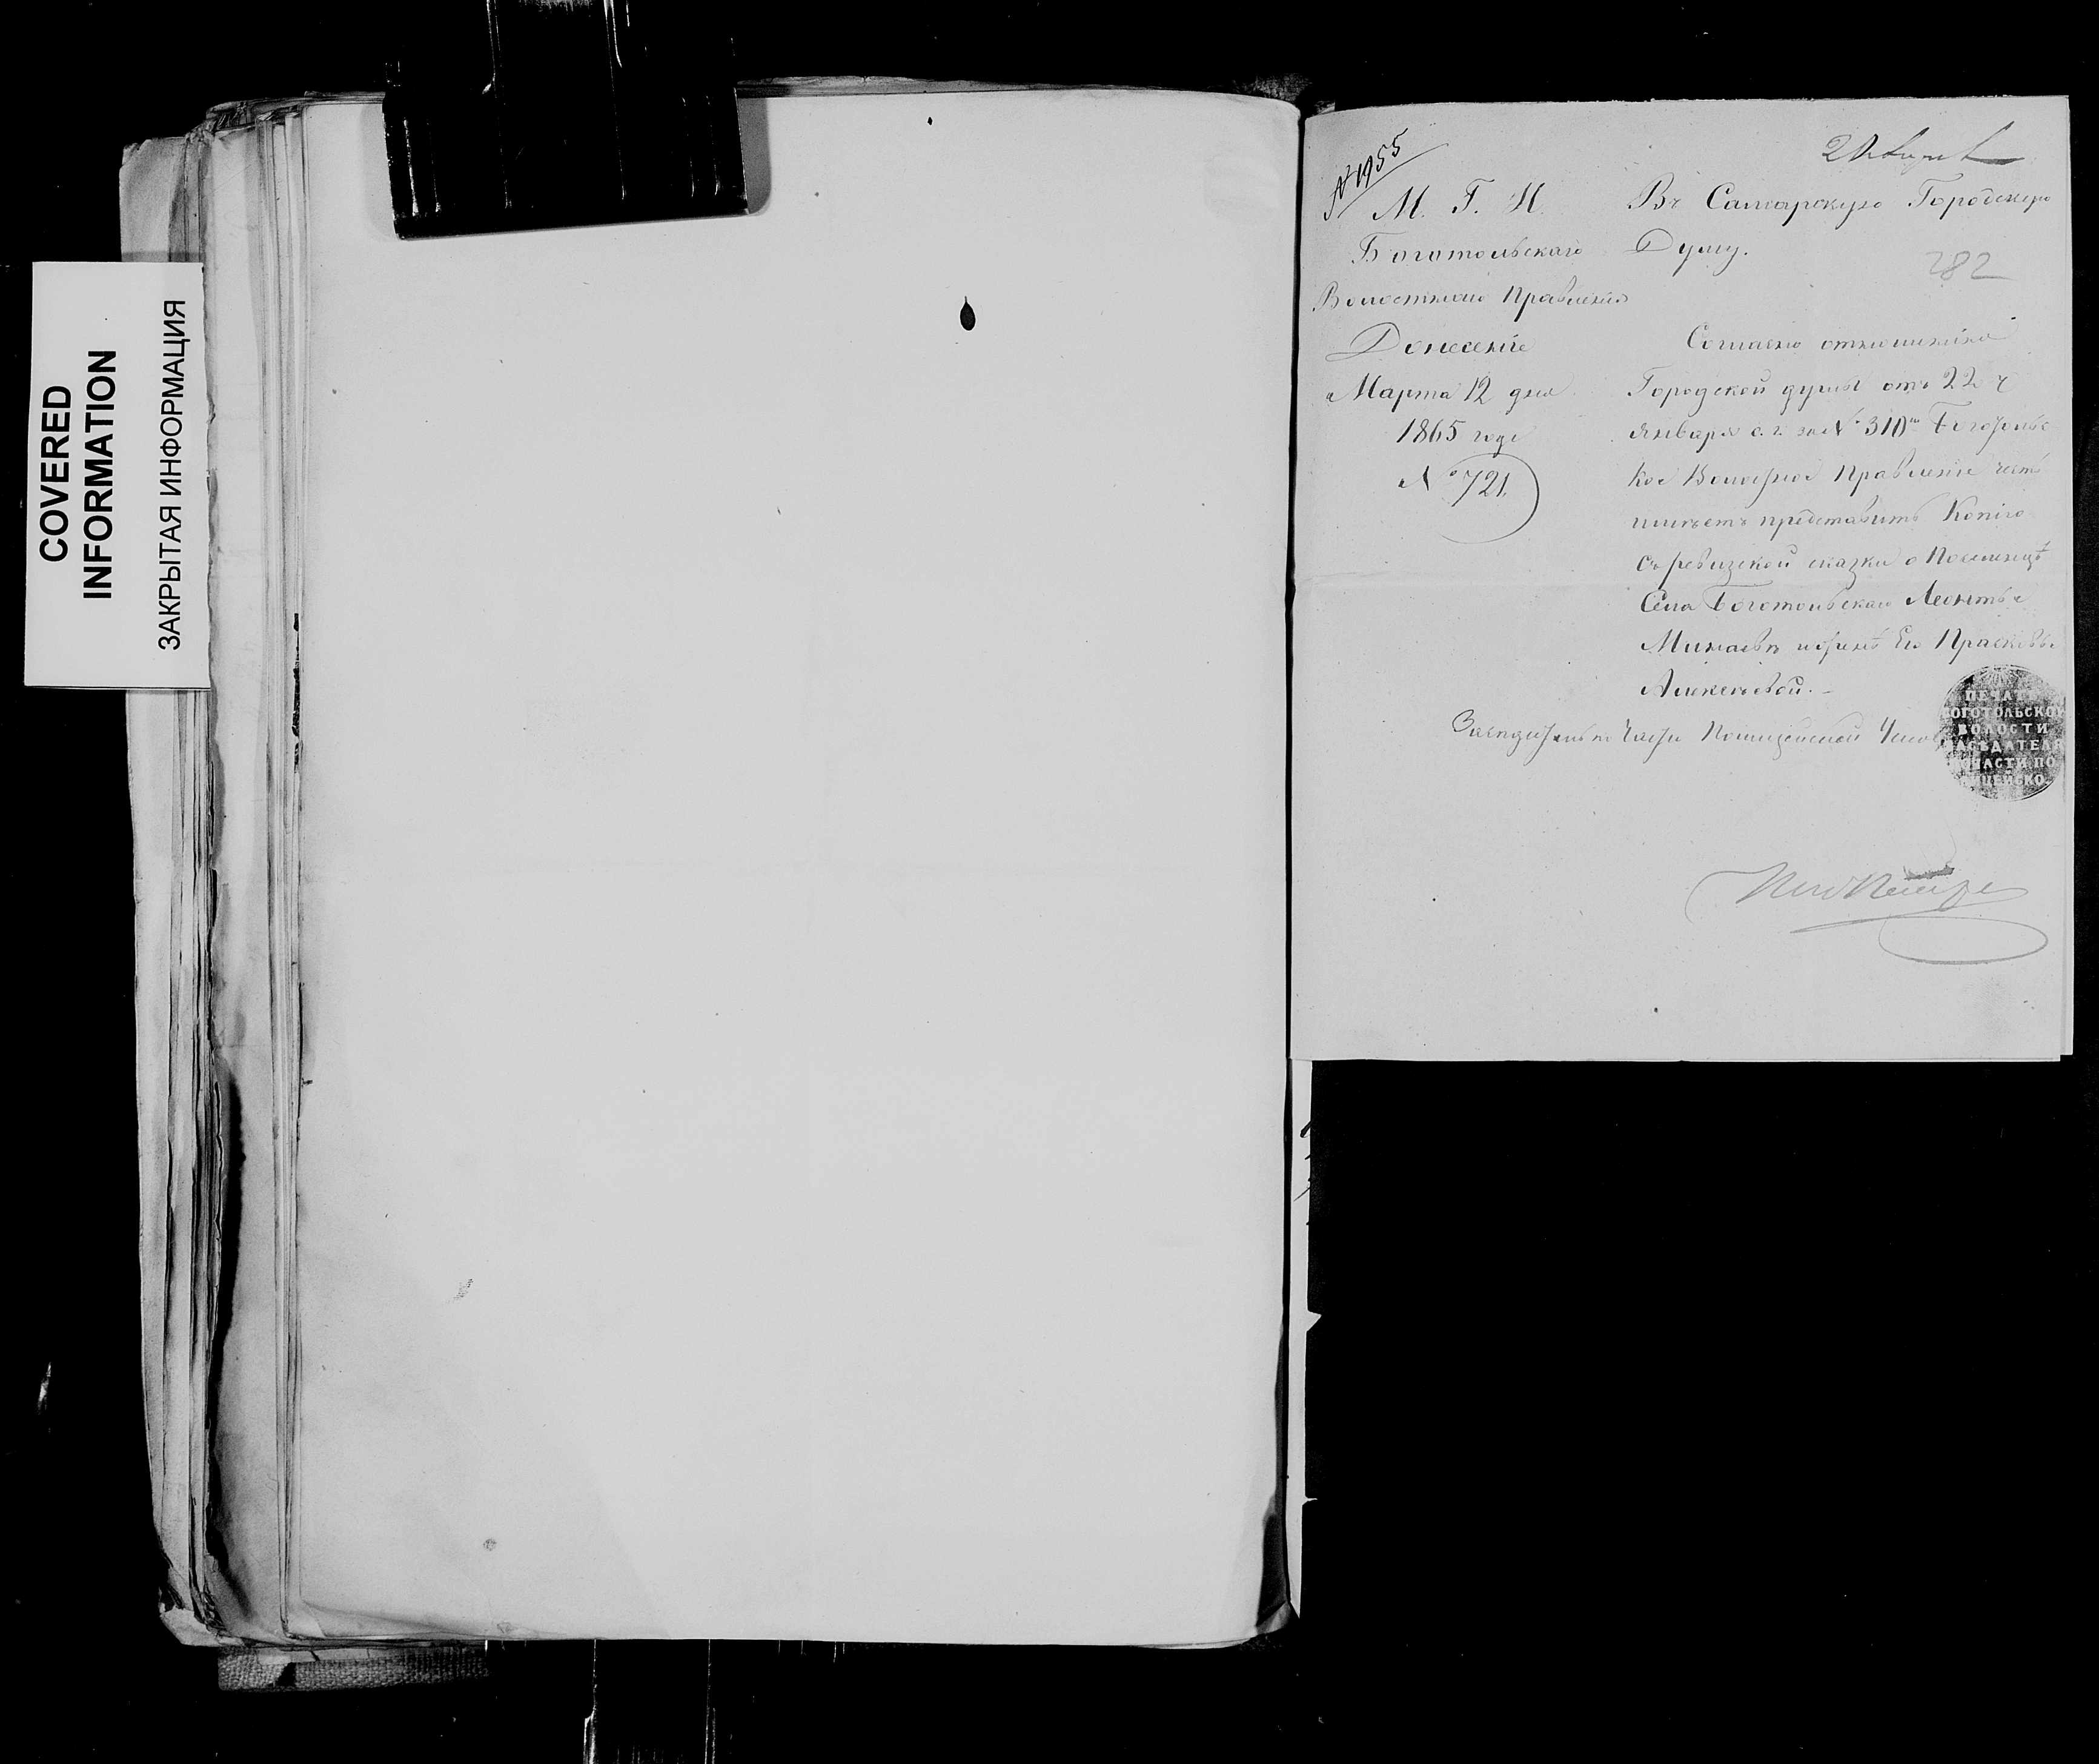 COVERED
INFORMATION
ЗАКРЫТАЯ ИНФОРМАЦИЯ
№ 1955
М. Г. И.
Боготольскаго
Волостнаго Правленія
Донесеніе
Марта 12 дня
1865 года
№ 721.
Въ Самарскую Городскую
Думу.
282
Согласно отношенія
Городской думы отъ 22 ч
января с. г. за № 310 Боготольс
кое Волостное Правленіе честь
имѣетъ представить Копію
съ ревизской сказки о Поселенцѣ
Села Боготольскаго Леонтьѣ
Минаевѣ и женѣ Его Прасковьѣ
Алексѣевой.
Засѣдатель по Части Полицейской
ПЕЧАТЬ
БОГОТОЛЬСКОЙ
ВОЛОСТИ
ЗАСѢДАТЕЛЯ
ЧАСТИ ПО
ЛИЦЕЙСКО